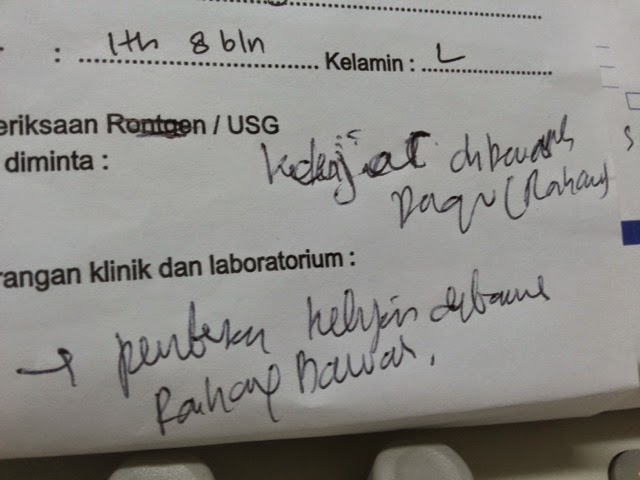 : 1th 8 bln Kelamin : L
eriksaan Rontgen / USG
diminta :
dibawah
Dagu (Rahang)
rangan klinik dan laboratorium :
→ pembesaran kelenjar dibawah
Rahang Bawah.